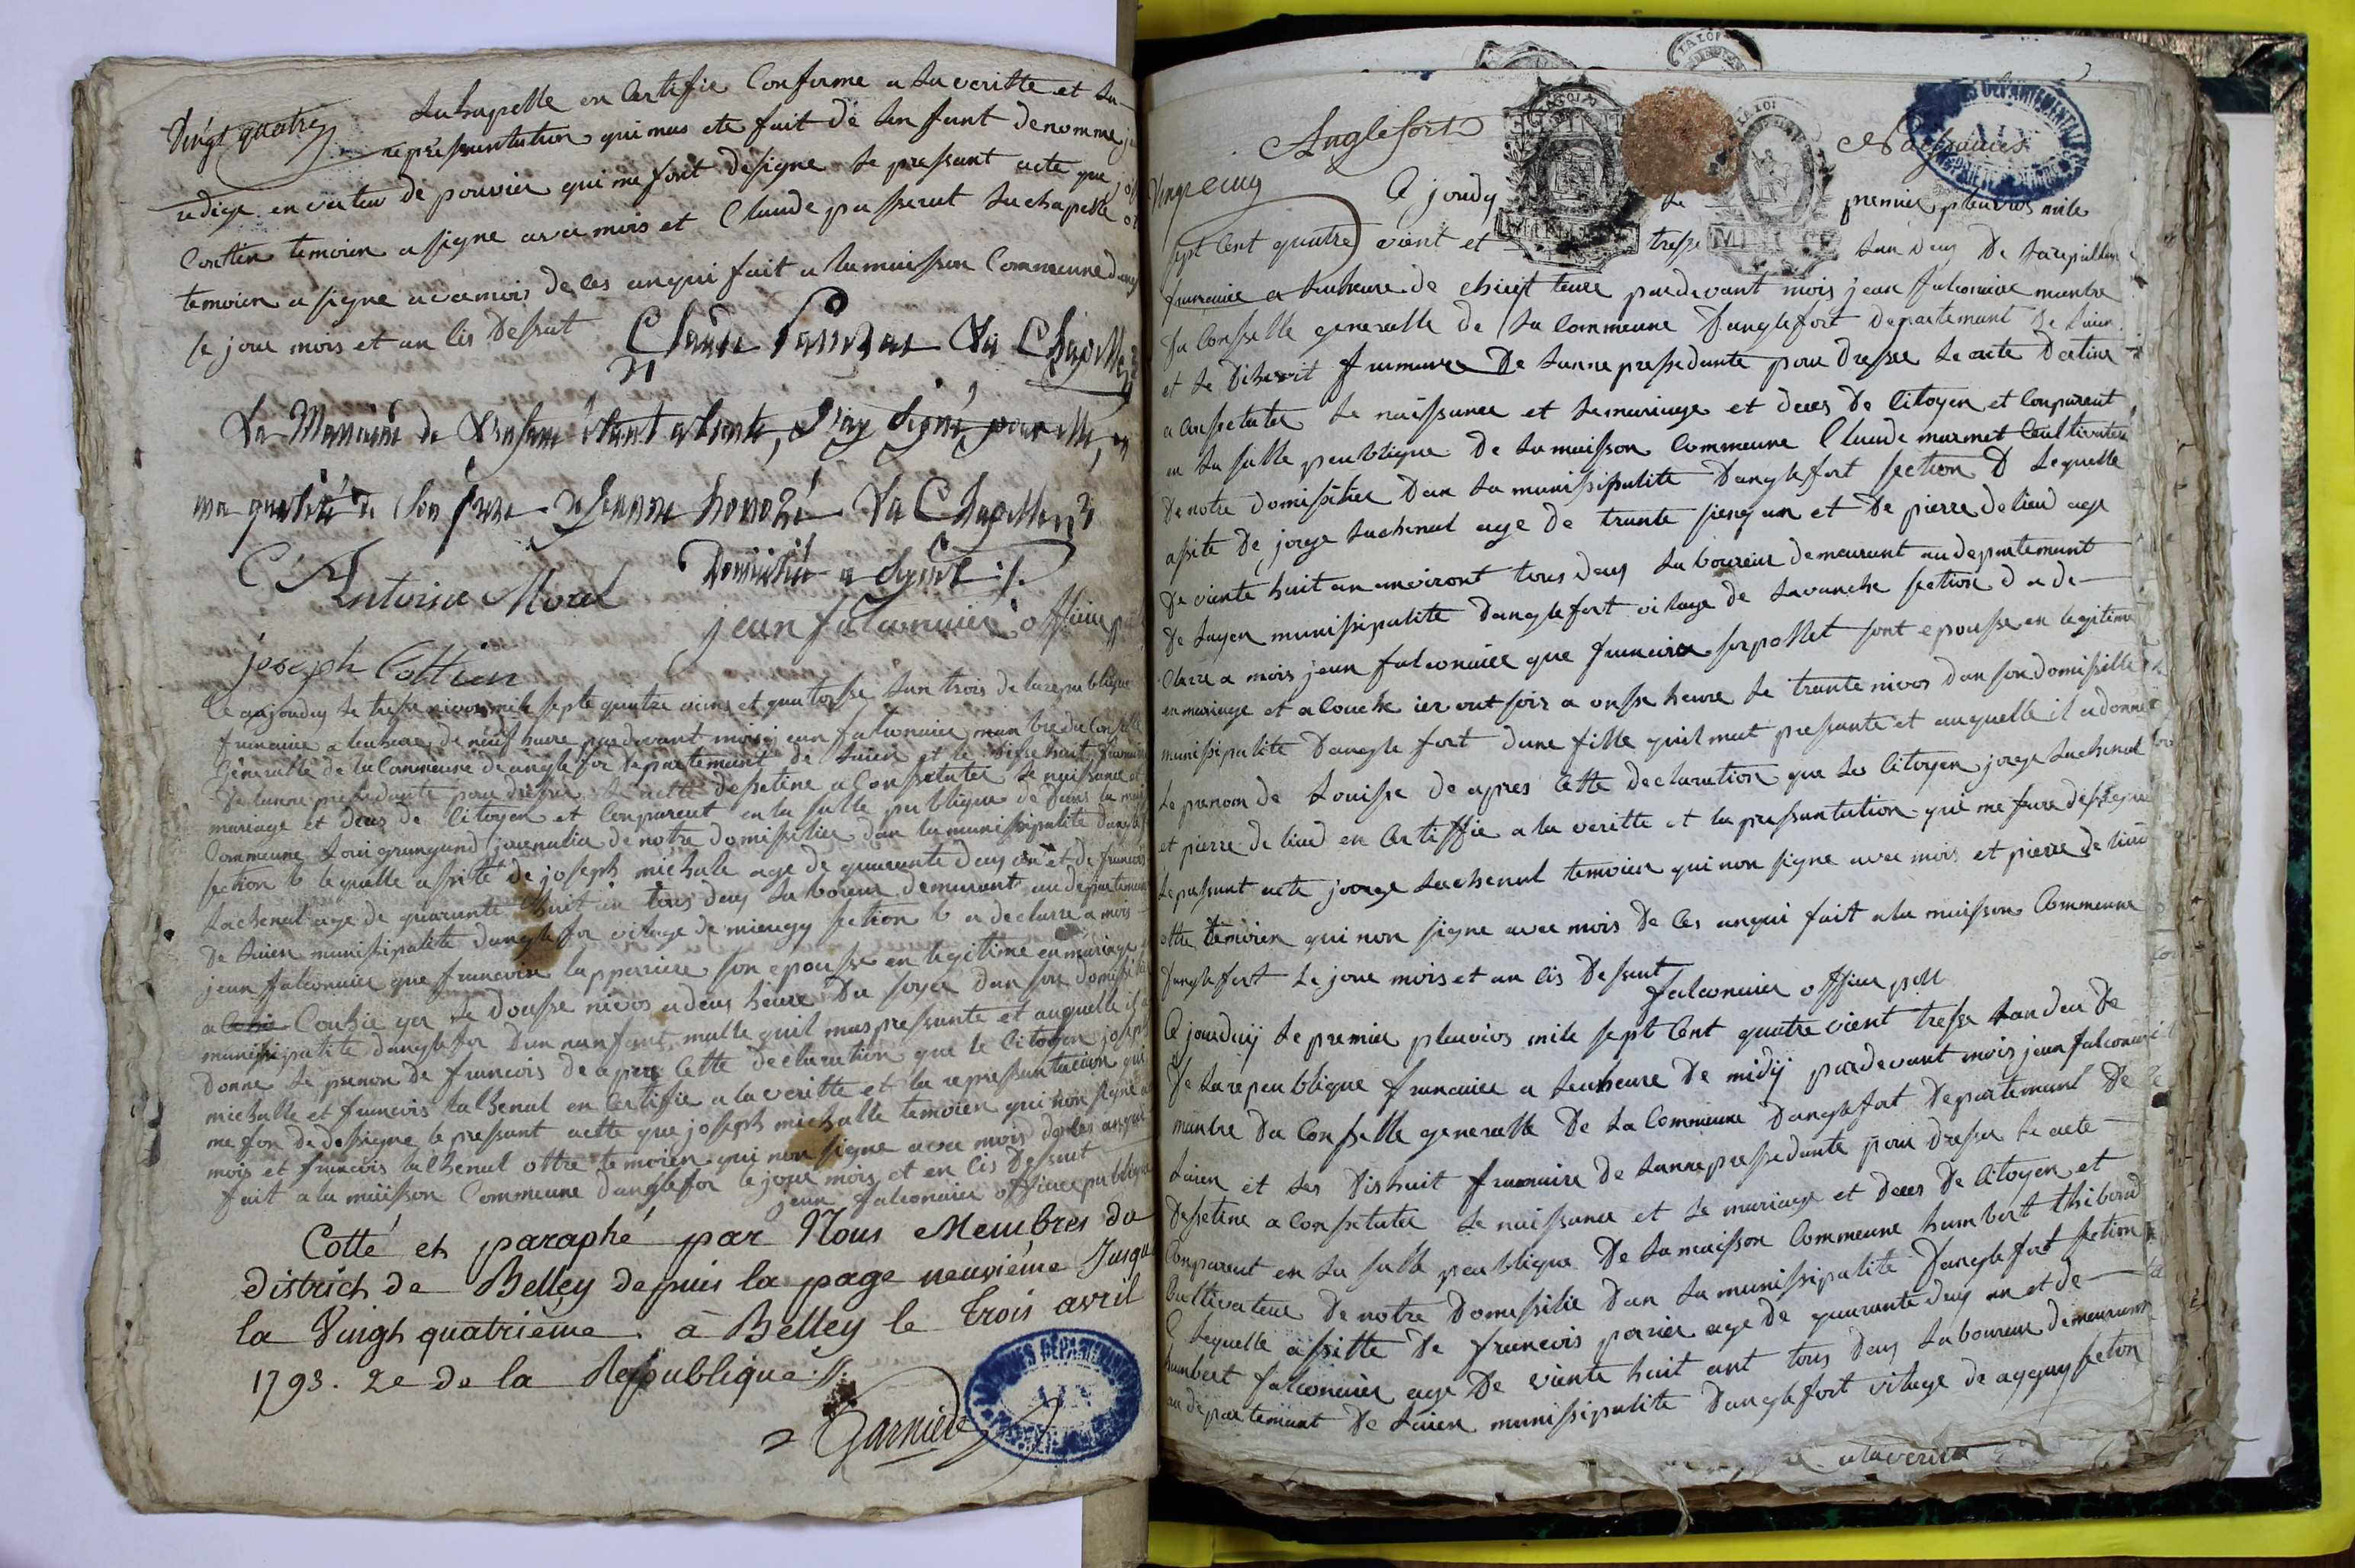 Vingt quatre
Lachapelle en Certifie Conforme a la veritte et la
representation qui mas ete fait de lenfant denomme
redige en vertu de pouvoir qui me sont designe le pressant acte que
Cottin temoien a signe avec mois et Claude passerat Lachapelle
temoien a signe avec mois de ces anqui fait a la maisson Commeune
le jour mois et an cis Dessut
Claude Passerat La Chapelle
La Marraine de L'enfant étant absente, J'ay signé pour elle, en
ma qualité de son frere
La Chapelle
C Antoine Morel
Domicilié a
jean falconnier officier
joseph Cottin
Ce aujourduy le tresse nivos mile septe quatre vient et quatorsse lan trois de la republique
francaise a leuheure de neuf heure pardevant mois jean falconnier manbre du Conselle
Géneralle de la Commeune de anglefor departemant de Laien et le disse huit frumaire
De lanne pressedante pour dresser le acte dessetine a Consetater le naissance et
mariage et deces de Citoyen et Conparent en la salle peublique de Dans la mais
Commeune Loui grangand journalier de notre domissilier dan la munissipalite dangle
section b lequelle assite de joseph michale age de quarante deuy an et de francois
Lachenal age de quarante huit an tous deuy laboureur demeurant au departement
De Laien munissipalite danglefor vilage de mieugy section b a declarre a mois
jean falconnier que francoise lapperriere son epousse en legitime en mariage
a Couhe yer le dousse nivos a deuy heure Du soyer dan son domissile
munissipalite danglefor dun nanfant malle quil mas pressante et auquelle il
donne le prenon de francois de apres Cette declaration que le Citoyen joseph
michalle et francois lachenal en Certifie a la veritte et la repressantacion qui
me fon de dessigne le pressant actte que joseph michalle temoien qui non signe
mois et francois lachenal ottre temoien qui non signe avec mois de ces anqui
fait a la maisson Commeune danglefor le jour mois et en cis Dessut
jean falconnier officier publique
Cotté et paraphé par Nous Membres du
district de Belley depuis la page neuvième Jusqu'a
la Vingt quatrième. à Belley le trois avril
1793. 2e de la Republique
Garnier
ARCHIVES DÉPARTEMENTALES
AIN
Anglefort
LA LOI
LA LOI
Naissances
ARCHIVES DÉPARTEMENTALES
AIN
Vingt cinq
Ce jourduy le premier pleuvios mile
sept Cent quatre vient et tresse lan deuy De la republique
francaise a leuheure de chieist heure pardevant mois jean falconnier manbre
Du Consselle generalle de la Commeune Danglefort departemant De Laien
et le Disheuit frumaire De lanne pressedante pour dresser le acte Dectine
a Consetater le naissance et le mariage et deces De Citoyen et Conparent
en la salle peublique De la maisson Commeune Claude marmet Ceultivateur
De notre domissilier Dan la munissipalite Danglefort section D lequelle
assite De jorge Lachenal age De trante sienq an et De pierre delieud age
De viente huit an anviront tous deuy laboureur demeurant au departemant
De Layen munissipalite danglefort vilage de Lavanche section d a de
clarre a mois jean falconnier que francoise serpollet sont epousse en legitime
en mariage et a Couche ier out soir a onsse heure le trante nivos dan son domissille
munissipalite Danglefort dune fille quil mat pressante et auquelle il a donne
Le prenom de Louisse de apres Cette declaration que les Citoyen jorge Lachenal
et pierre de lieud en Certiffie a la veritte et la pressantation qui me faire dessigne
le pressant acte jorge Lachenal temoien qui non signe avec mois et pierre de lieud
ottre temoien qui non signe avec mois De Ces anqui fait a la maisson Commeune
danglefort le jour mois et an cis Dessut
falconnier officier
Ce jourduij le premier pleuvios mile sept Cent quatre vient tresse lan deu De
De la repeublique francaise a leuheure De midij pardevant mois jean falconnier
manbre Du Consselle generalle De la Commeune Danglefort Departemant De
Laien et les Dishuit frumaire De lanne pressedante pour dresser le acte
Dessetine a Consetater le naissance et le mariage et deces De Citoyen et
Conparent en la salle peublique De la maisson Commeune humbert thiboud
Cultivateur De notre Domissilie Dan la munissipalite Danglefort section
C lequelle assitte De francois perrier age De quarante deuy an et de
humbert falconnier age De viente huit ant tous deuy laboureur demeurant
au departemant De Laien munissipalite Danglefort vilage de section
a la veritte